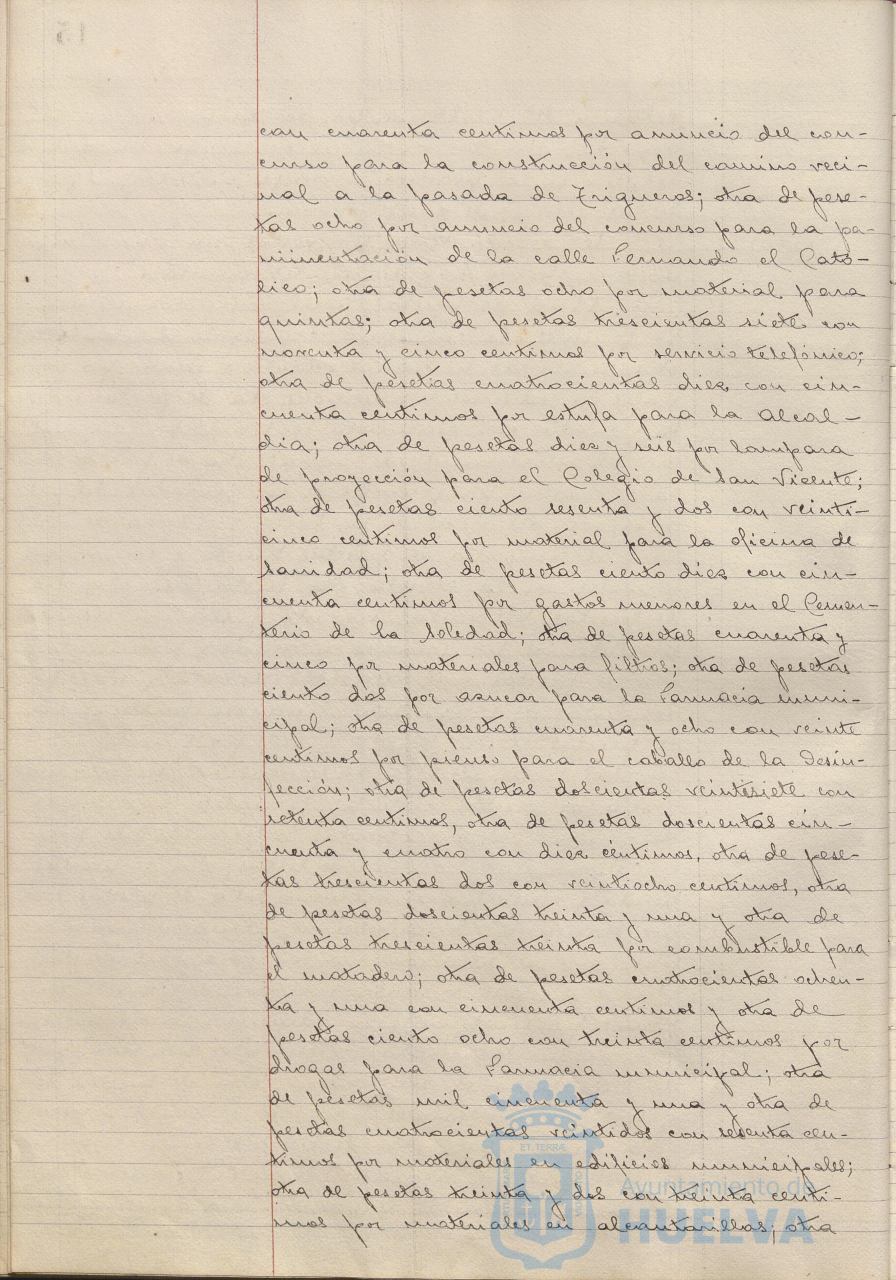 con cuarenta centimos por anuncio del con-
curso para la construcción del camino veci-
nal a la pasada de Trigueros; otra de pese-
tas ocho por anuncio del concurso para la pa-
vimentación de la calle Fernando el Cató-
lico; otra de pesetas ocho por material para
quintas; otra de pesetas trescientas siete con
noventa y cinco centimos por servicio telefónico;
otra de pesetas cuatrocientas diez con cin-
cuenta centimos por estufa para la Alcal-
dia; otra de pesetas diez y seis por lampara
de proyección para el Colegio de San Vicente;
otra de pesetas ciento sesenta y dos con veinti-
cinco centimos por material para la oficina de
Sanidad; otra de pesetas ciento diez con cin-
cuenta centimos por gastos menores en el Cemen-
terio de la Soledad; otra de pesetas cuarenta y
cinco por materiales para filtros; otra de pesetas
ciento dos por azucar para la Farmacia muni-
cipal; otra de pesetas cuarenta y ocho con veinte
centimos por pienso para el caballo de la Desin-
fección; otra de pesetas doscientas veintisiete con
setenta centimos, otra de pesetas doscientas cin-
cuenta y cuatro con diez céntimos, otra de pese-
tas trescientas dos con veintiocho centimos, otra
de pesetas doscientas treinta y una y otra de
pesetas trescientas treinta por combustible para
el matadero; otra de pesetas cuatrocientas ochen-
ta y una con cincuenta centimos y otra de
pesetas ciento ocho con treinta centimos por
drogas para la Farmacia municipal; otra
de pesetas mil cincuenta y una y otra de
pesetas cuatrocientas veintidos con sesenta cen-
timos por materiales en edificios municipales;
otra de pesetas treinta y dos con treinta centi-
mos por materiales en alcantarillas; otra
ET TERRÆ
Ayuntamiento de
HUELVA